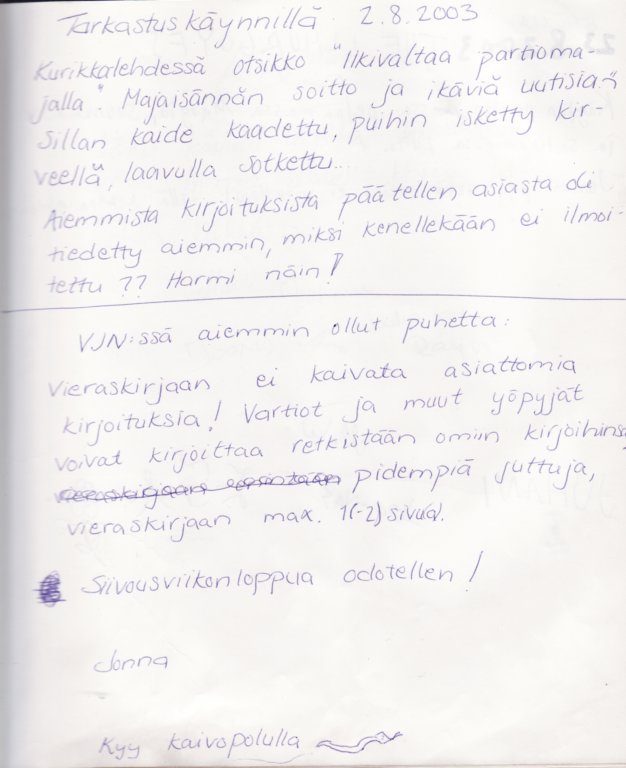 Tarkastuskäynnillä 2.8.2003
Kurikkalehdessä otsikko "Ilkivaltaa partioma-
jalla". Majaisännän soitto ja ikäviä uutisia:
Sillan kaide kaadettu, puihin isketty kir-
veellä, laavulla sotkettu...
Aiemmista kirjoituksista päätellen asiasta oli
tiedetty aiemmin, miksi kenellekään ei ilmoi-
tettu ?? Harmi näin!
VJN:ssä aiemmin ollut puhetta:
Vieraskirjaan ei kaivata asiattomia
kirjoituksia! Vartiot ja muut yöpyjät
voivat kirjoittaa retkistään omiin kirjoihinsa
pidempiä juttuja,
vieraskirjaan max. 1(-2) sivu(a).
Siivousviikonloppua odotellen!
Jonna
Kyy kaivopolulla